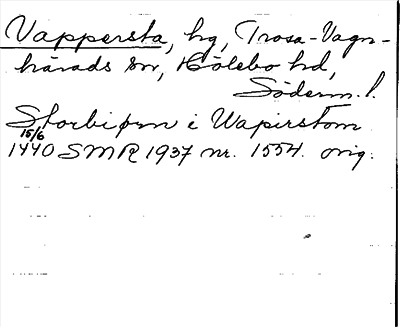 Vappersta, hg, Trosa-Vagn-
härads sn, Hölebo hd,
Söderm. l.
Storbiørn i Wapirstom
15/6
1440 SMR 1937 nr. 1554. orig.